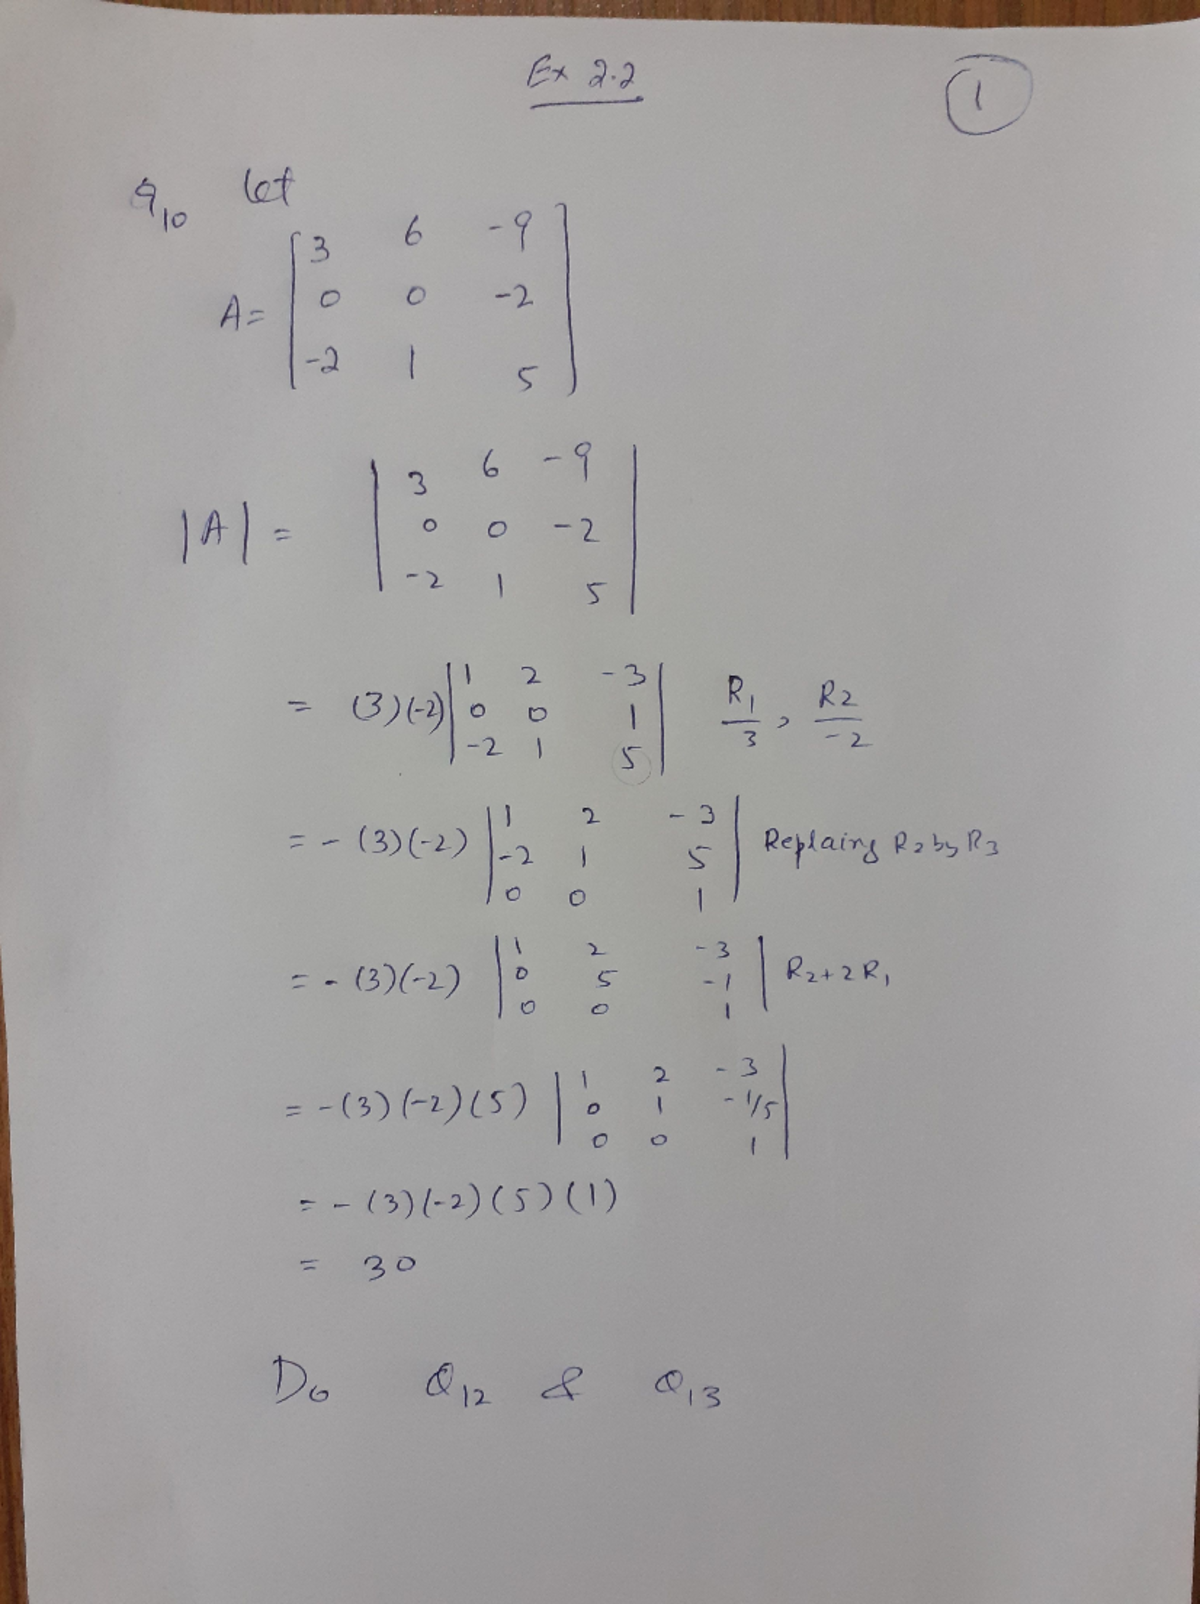 Ex 2.2
1
Q10 Let
A = [ 3 6 -9
0 0 -2
-2 1 5 ]
|A| = | 3 6 -9
0 0 -2
-2 1 5 |
= (3)(-2) | 1 2 -3
0 0 1
-2 1 5 | R1/3 , R2/-2
= - (3)(-2) | 1 2 -3
-2 1 5
0 0 1 | Replaing R2 by R3
= - (3)(-2) | 1 2 -3
0 5 -1
0 0 1 | R2 + 2R1
= - (3)(-2)(5) | 1 2 -3
0 1 -1/5
0 0 1 |
= - (3)(-2)(5)(1)
= 30
Do Q12 & Q13